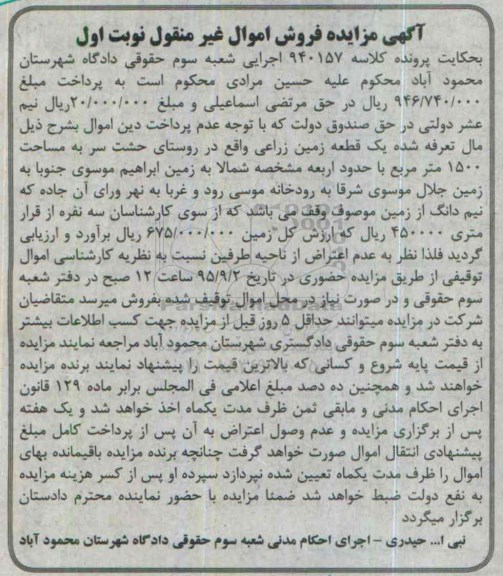 آگهی مزایده فروش اموال غیر منقول نوبت اول
بحکایت پرونده کلاسه ۹۴۰۱۵۷ اجرایی شعبه سوم حقوقی دادگاه شهرستان
محمود آباد محکوم علیه حسین مرادی محکوم است به پرداخت مبلغ
۹۴۶/۷۴۰/۰۰۰ ریال در حق مرتضی اسماعیلی و مبلغ ۲۰/۰۰۰/۰۰۰ریال نیم
عشر دولتی در حق صندوق دولت که با توجه عدم پرداخت دین اموال بشرح ذیل
مال تعرفه شده یک قطعه زمین زراعی واقع در روستای حشت سر به مساحت
۱۵۰۰ متر مربع با حدود اربعه مشخصه شمالا به زمین ابراهیم موسوی جنوبا به
زمین جلال موسوی شرقا به رودخانه موسی رود و غربا به نهر ورای آن جاده که
نیم دانگ از زمین موصوف وقف می باشد که از سوی کارشناسان سه نفره از قرار
متری ۴۵۰۰۰۰ ریال که ارزش کل زمین ۶۷۵/۰۰۰/۰۰۰ ریال برآورد و ارزیابی
گردید فلذا نظر به عدم اعتراض از ناحیه طرفین نسبت به نظریه کارشناسی اموال
توقیفی از طریق مزایده حضوری در تاریخ ۹۵/۹/۲ ساعت ۱۲ صبح در دفتر شعبه
سوم حقوقی و در صورت نیاز در محل اموال توقیف شده بفروش میرسد متقاضیان
شرکت در مزایده میتوانند حداقل ۵ روز قبل از مزایده جهت کسب اطلاعات بیشتر
به دفتر شعبه سوم حقوقی دادگستری شهرستان محمود آباد مراجعه نمایند مزایده
از قیمت پایه شروع و کسانی که بالاترین قیمت را پیشنهاد نمایند برنده مزایده
خواهند شد و همچنین ده دصد مبلغ اعلامی فی المجلس برابر ماده ۱۲۹ قانون
اجرای احکام مدنی و مابقی ثمن ظرف مدت یکماه اخذ خواهد شد و یک هفته
پس از برگزاری مزایده و عدم وصول اعتراض به آن پس از پرداخت کامل مبلغ
پیشنهادی انتقال اموال صورت خواهد گرفت چنانچه برنده مزایده باقیمانده بهای
اموال را ظرف مدت یکماه تعیین شده نپردازد سپرده او پس از کسر هزینه مزایده
به نفع دولت ضبط خواهد شد ضمنا مزایده با حضور نماینده محترم دادستان
برگزار میگردد
نبی ا... حیدری – اجرای احکام مدنی شعبه سوم حقوقی دادگاه شهرستان محمود آباد